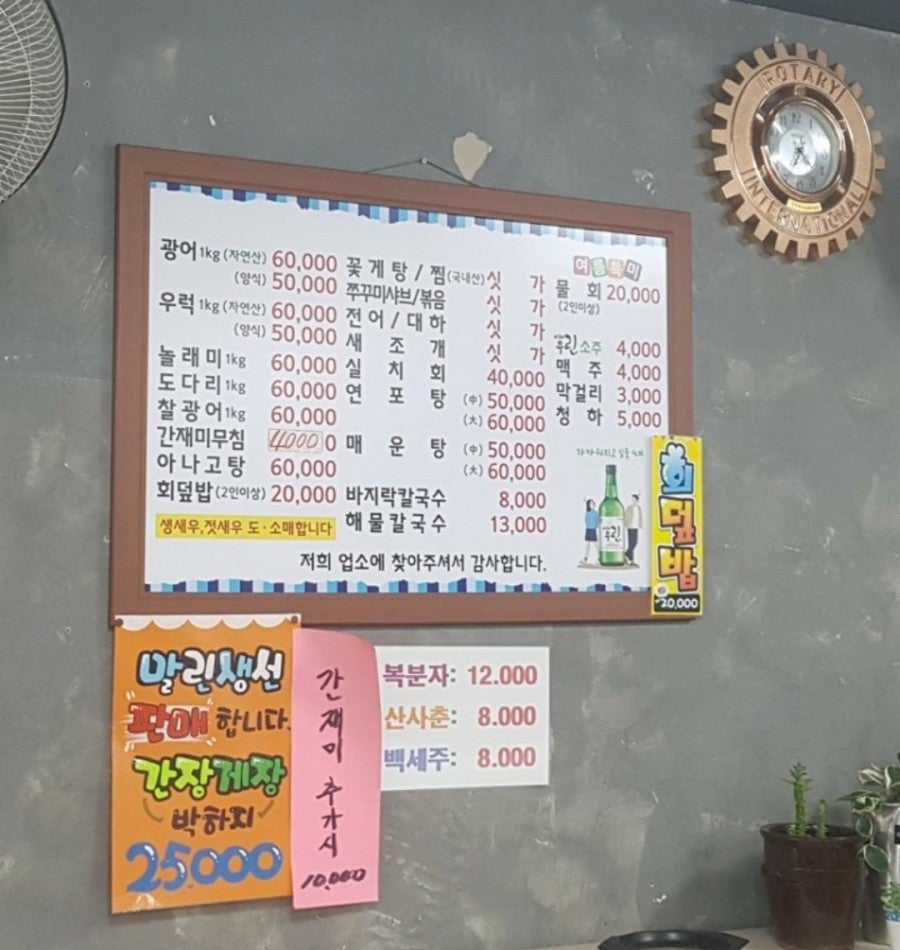 광어 1kg (자연산) 60,000
(양식) 50,000
우럭 1kg (자연산) 60,000
(양식) 50,000
놀래미 1kg 60,000
도다리 1kg 60,000
찰광어 1kg 60,000
간재미무침
아나고탕 60,000
회덮밥 (2인이상) 20,000
생새우,젓새우 도·소매합니다
꽃게탕/찜 (국내산) 싯가
쭈꾸미샤브/볶음 싯가
전어/대하 싯가
새조개 싯가
실치회 40,000
연포탕 (中) 50,000
(大) 60,000
매운탕 (中) 50,000
(大) 60,000
바지락칼국수 8,000
해물칼국수 13,000
저희 업소에 찾아주셔서 감사합니다.
여름특미
물회 20,000
(2인이상)
린소주 4,000
맥주 4,000
막걸리 3,000
청하 5,000
회덮밥
20,000
말린생선
판매합니다.
간장게장
박하지
25,000
간재미 추가시
10,000
복분자: 12.000
산사춘: 8.000
백세주: 8.000
ROTARY
INTERNATIONAL